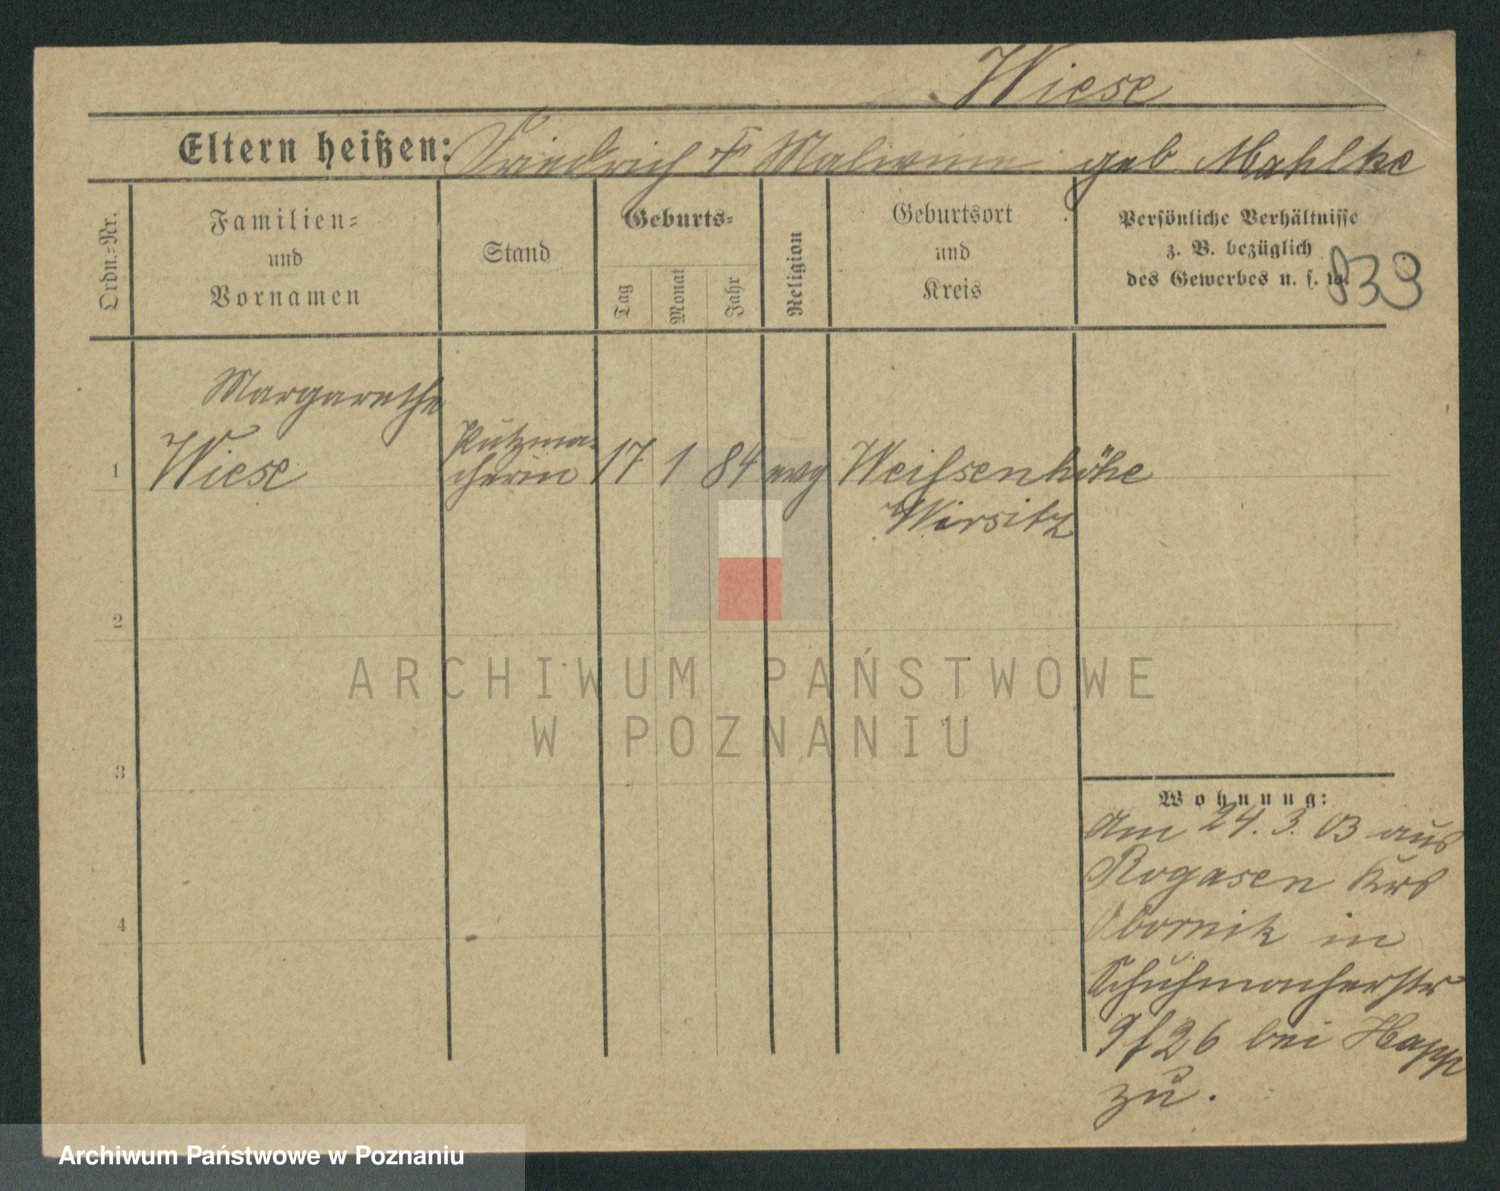 Wiese
Eltern heißen: Friedrich + Malwine geb Mahlke
Ordn.-Nr.
Familien-
und
Vornamen
Stand
Geburts-
Tag
Monat
Jahr
Religion
Geburtsort
und
Kreis
Persönliche Verhältnisse
z. B. bezüglich
des Gewerbes u. s. w.
939
Margarethe
1 Wiese
Putzma-
cherin
17 1 84 evg
Weißenhöhe
Wirsitz
2
3
4
ARCHIWUM PAŃSTWOWE
W POZNANIU
Wohnung:
Am 24.3.03 aus
Rogasen Krs
Obornik in
Schuhmacherstr
9/26 bei Happ
zu.
Archiwum Państwowe w Poznaniu